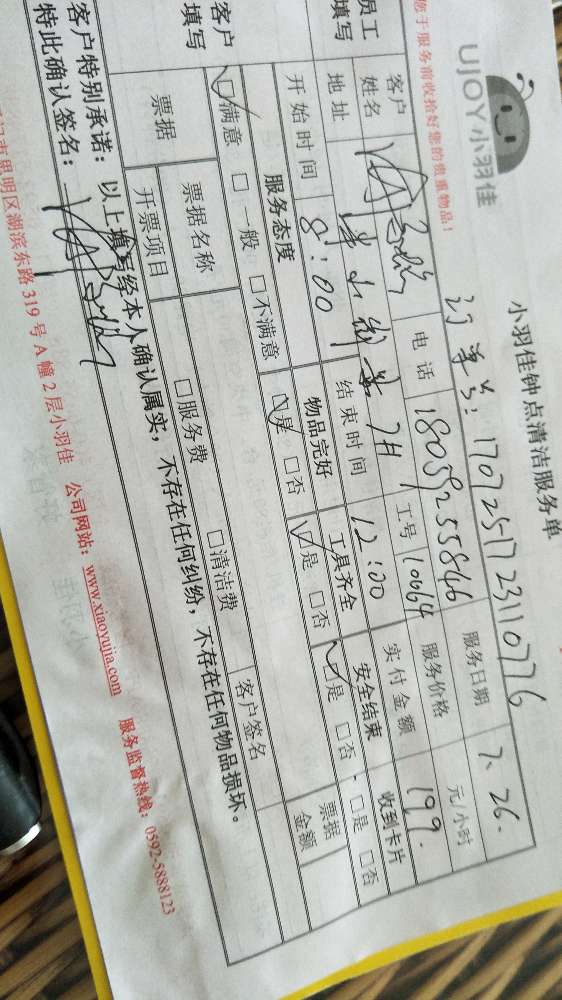 UJOY小羽佳
小羽佳钟点清洁服务单
您于服务前收拾好您的贵重物品!
订单号: 1707251723110776
员工填写
客户姓名 电话 18059255846 服务日期 7.26.
地址 工号 10664 服务价格 元/小时
开始时间 8:00 结束时间 12:00 实付金额 199.
客户填写
服务态度 物品完好 工具齐全 安全结束 收到卡片
☑满意 □一般 □不满意 ☑是 □否 ☑是 □否 ☑是 □否 □是 □否
票据 票据名称 □服务费 □清洁费 客户签名 票据金额
开票项目
客户特别承诺: 以上填写经本人确认属实,不存在任何纠纷,不存在任何物品损坏。
特此确认签名:
思明区湖滨东路319号A幢2层小羽佳 公司网站:www.xiaoyujia.com 服务监督热线:0592-5888123